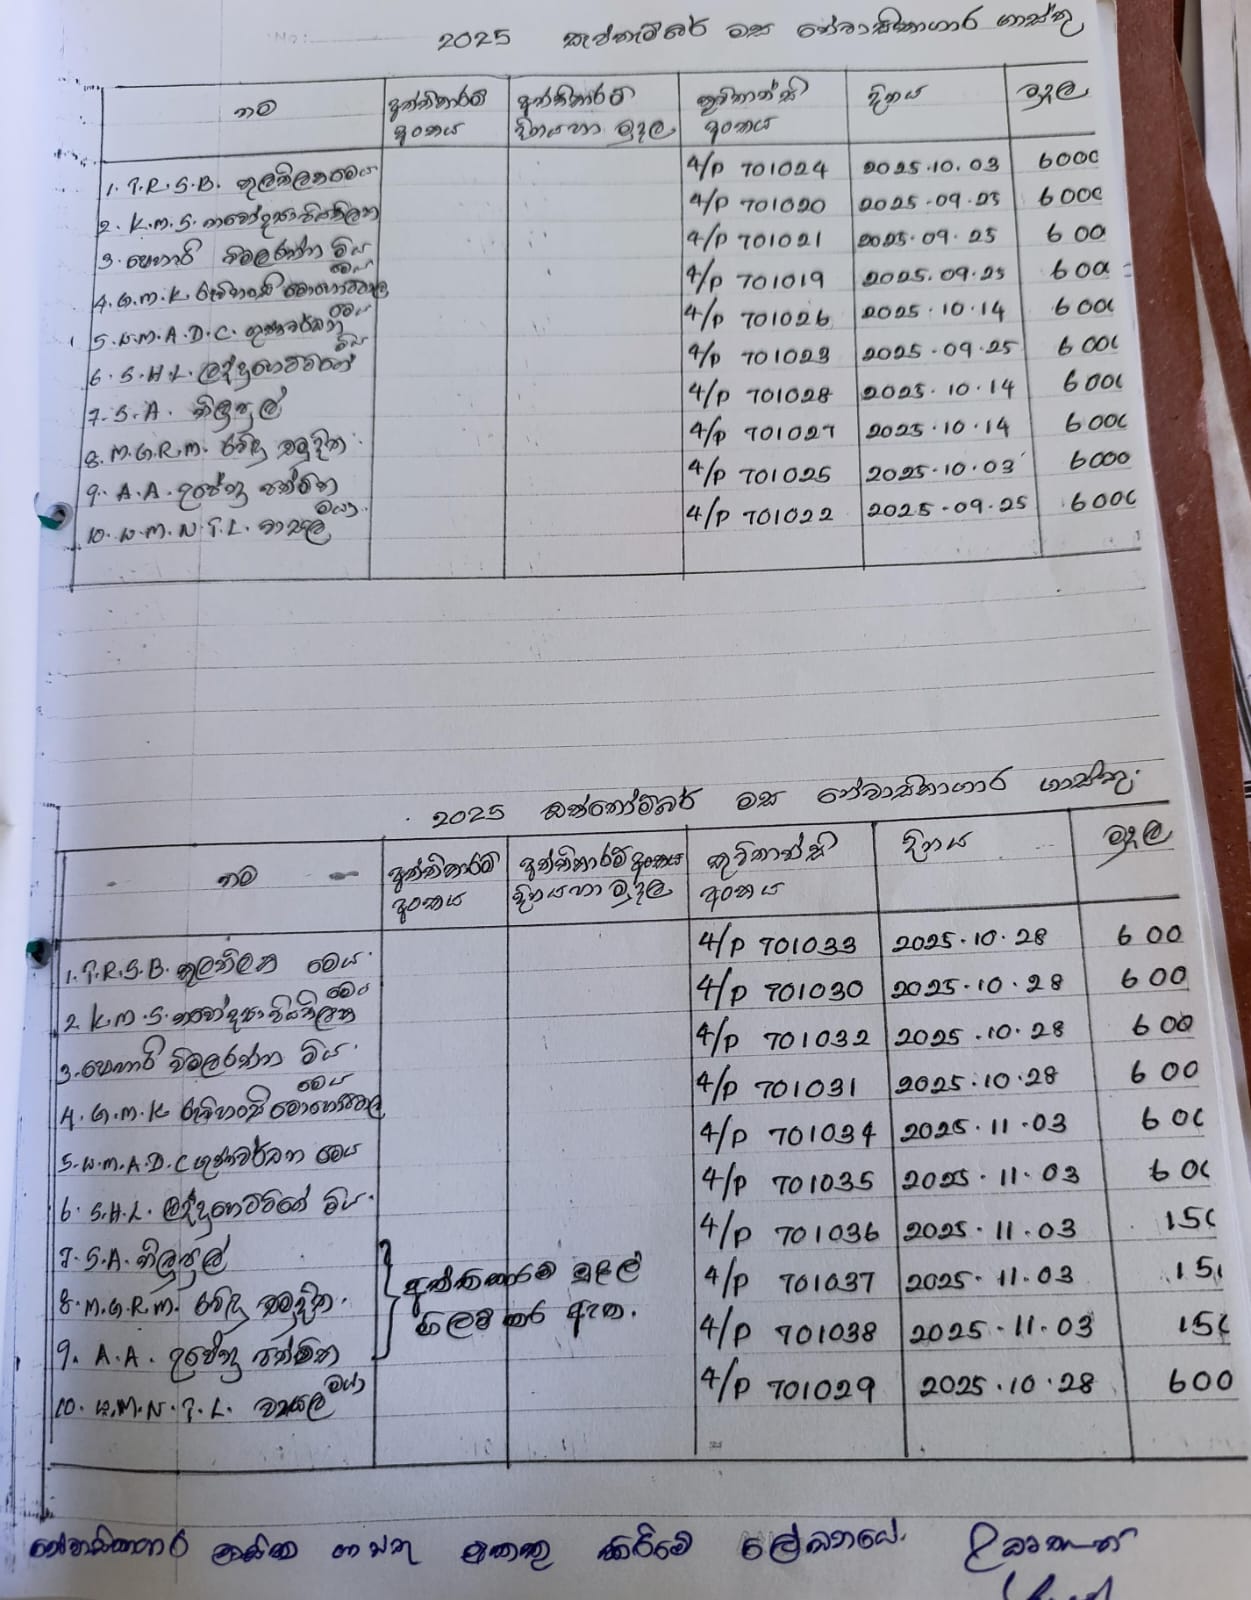 2025 සැප්තැම්බර් මස නේවාසිකාගාර ගාස්තු
නම අත්තිකාරම් අංකය අත්තිකාරම් දිනය හා මුදල කුවිතාන්සි අංකය දිනය මුදල
1. T.R.S.B. තුලතිලක මෙය 4/P 701024 2025.10.03 6000
2. K.M.S. 4/P 701020 2025.09.25 6000
3. විමලරත්න මිය 4/P 701021 2025.09.25 600
4. G.M.K මෙය 4/P 701019 2025.09.25 600
5. W.M.A.D.C. ගුණවර්ධන මෙය 4/P 701026 2025.10.14 600
6. S.H.L. ලද්දුහෙට්ටිගේ මිය 4/P 701023 2025.09.25 600
7. S.A. නිලුපුල් 4/P 701028 2025.10.14 600
8. M.G.R.M. රවිඳු සමුදිත 4/P 701027 2025.10.14 600
9. A.A. උපේන්ද්‍ර 4/P 701025 2025.10.03 6000
10. W.M.N.T.L. මයා 4/P 701022 2025.09.25 6000
2025 ඔක්තෝම්බර් මස නේවාසිකාගාර ගාස්තු.
නම අත්තිකාරම් අංකය අත්තිකාරම් අංකය දිනය හා මුදල කුවිතාන්සි අංකය දිනය මුදල
1. T.R.S.B. තුලතිලක මෙය. 4/P 701033 2025.10.28 600
2. K.M.S. මෙය 4/P 701030 2025.10.28 600
3. විමලරත්න මිය. 4/P 701032 2025.10.28 600
4. G.M.K මෙය 4/P 701031 2025.10.28 600
5. W.M.A.D.C ගුණවර්ධන මෙය 4/P 701034 2025.11.03 600
6. S.H.L. ලද්දුහෙට්ටිගේ මිය. 4/P 701035 2025.11.03 600
7. S.A. නිලුපුල් 4/P 701036 2025.11.03 15
8. M.G.R.M. රවිඳු සමුදිත. 4/P 701037 2025.11.03 15
9. A.A. උපේන්ද්‍ර 4/P 701038 2025.11.03 15
අත්තිකාරම් මුදල්
පියවි කර ඇත.
10. W.M.N.T.L. මයා 4/P 701029 2025.10.28 600
නේවාසිකාගාර මාසික ගාස්තු එකතු කිරීමේ ලේඛනයේ.